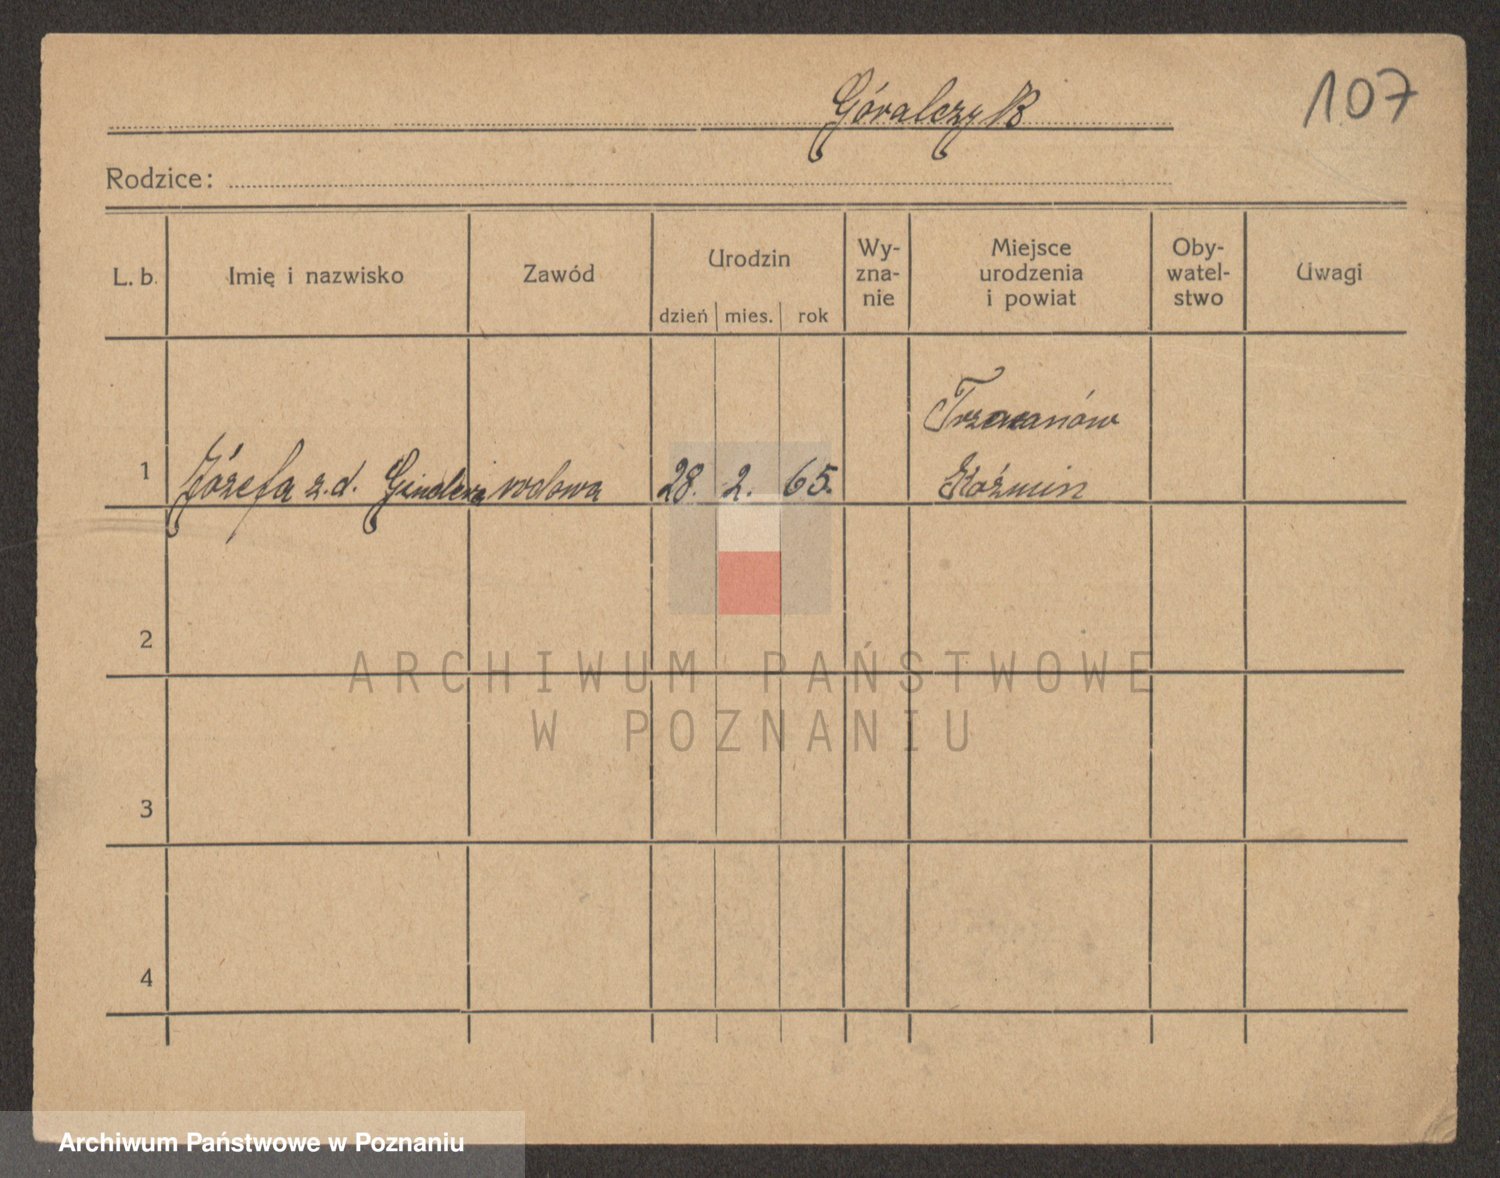 Góralczyk
107
Rodzice:
L. b. Imię i nazwisko Zawód Urodzin dzień mies. rok Wy-zna-nie Miejsce urodzenia i powiat Oby-watel-stwo Uwagi
Trzaanów
1 Józefa z.d. wdowa 28. 2. 65. Koźmin
2
3
4
ARCHIWUM PAŃSTWOWE
W POZNANIU
Archiwum Państwowe w Poznaniu